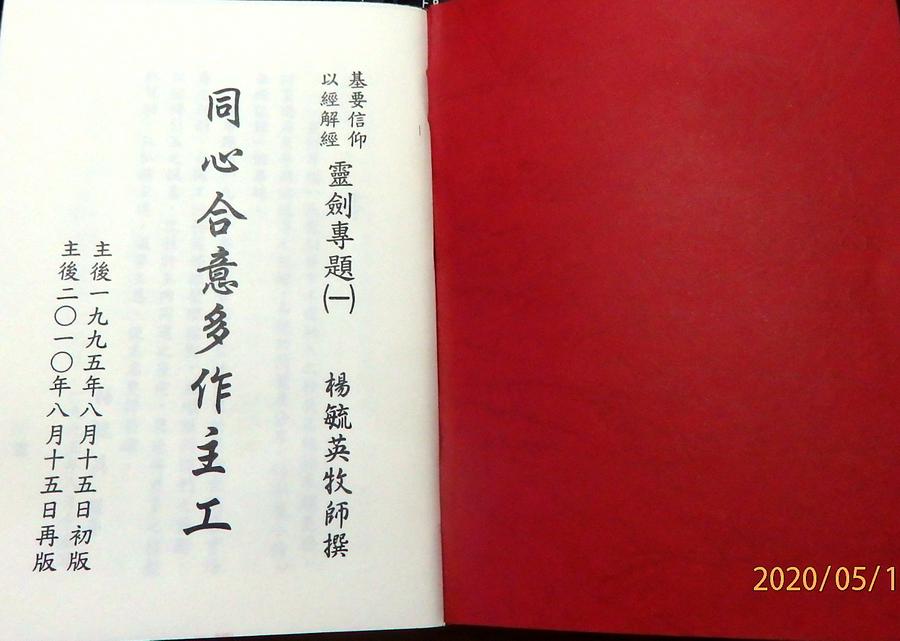 基要信仰
以經解經
靈劍專題(一)
楊毓英牧師撰
同心合意多作主工
主後一九九五年八月十五日初版
主後二〇一〇年八月十五日再版
2020/05/1